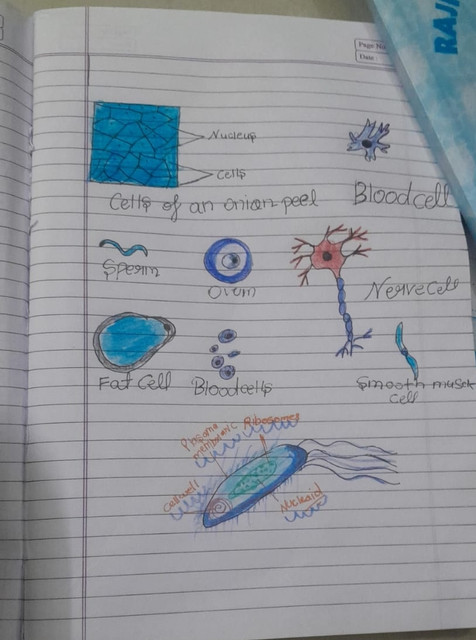 Page No
Date
RAJ
Nucleus
Cells
Cells of an onion peel
Blood cell
Sperm
Ovum
Nerve Cell
Fat Cell
Blood cells
Smooth muscle
cell
Plasma
membrane
Ribosomes
Cell wall
Nucleoid